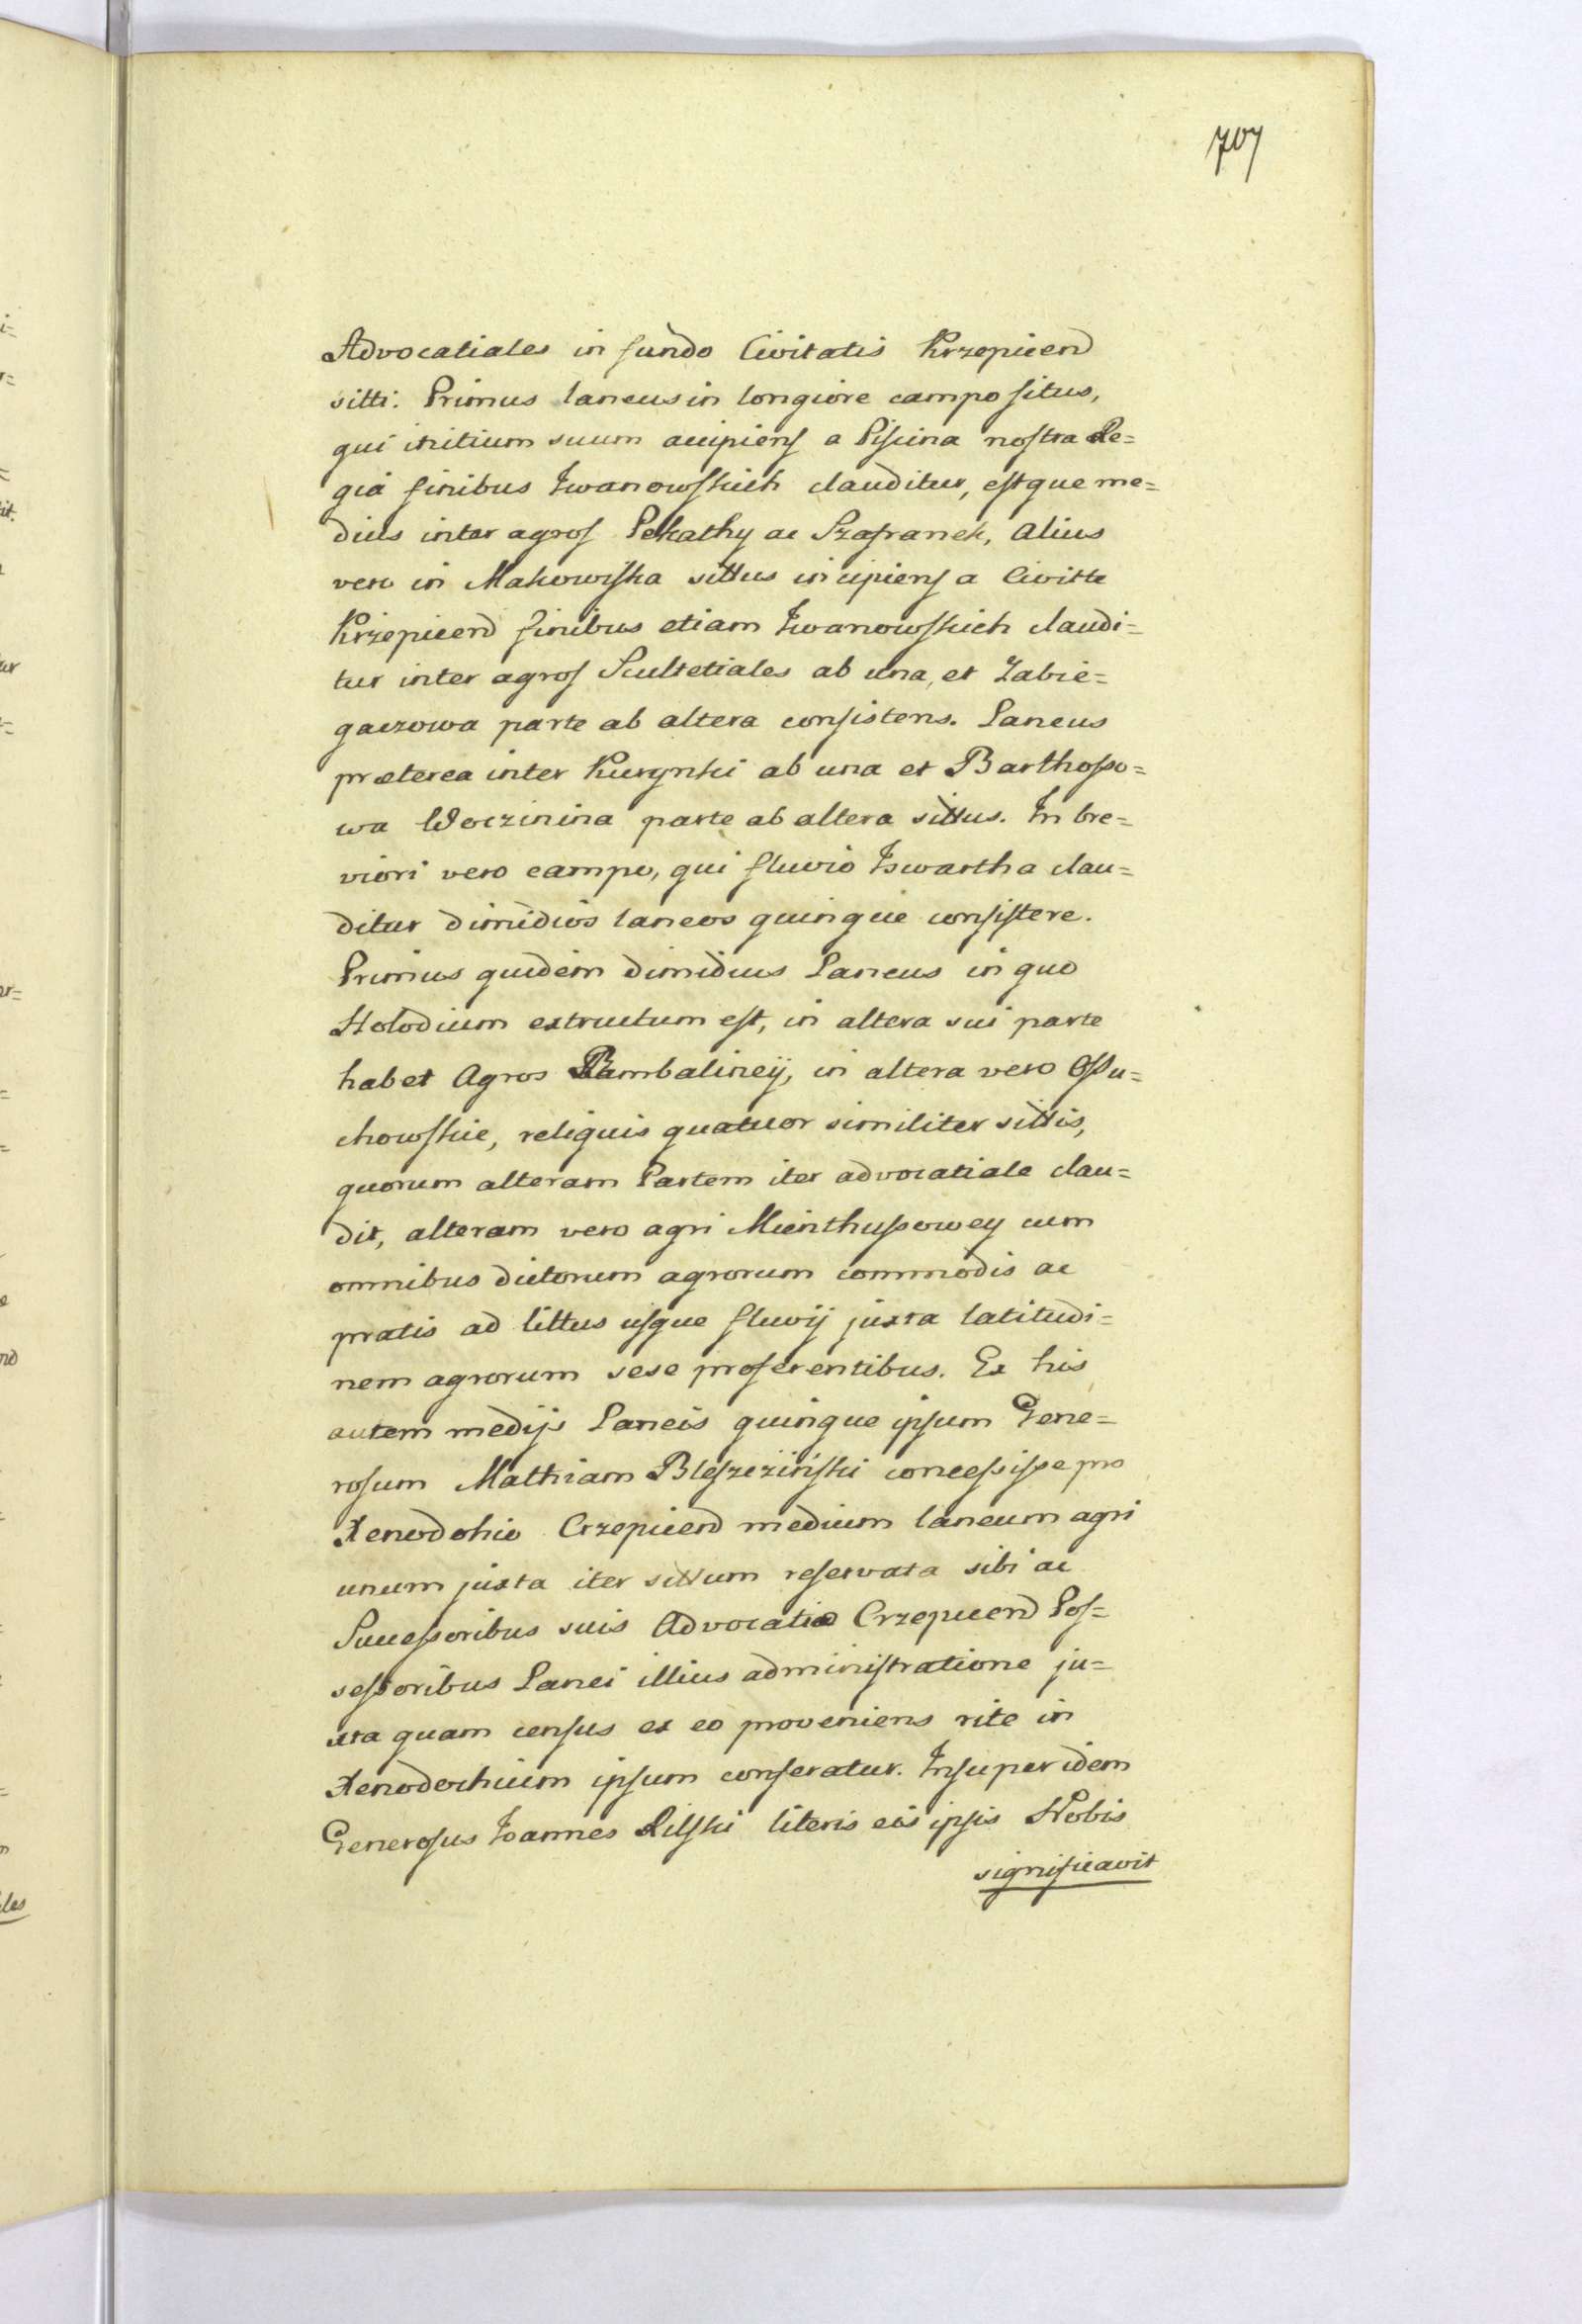 707
Advocatiales in fundo Civitatis Krzepicen
sitti. Primus laneus in longiore campo situs,
qui initium suum accipiens a Piscina nostra Re=
gia finibus Iwanowskich clauditur, estque me=
dius inter agros Pekathy ac Szafranek, alius
vero in Makowiska sittus incipiens a Civitte
Krzepicen finibus etiam Iwanowskich claudi=
tur inter agros Scultetiales ab una, et Zabie=
gaczowa parte ab altera consistens. Laneus
præterea inter Kurynski ab una et Barthosso=
wa Woczinina parte ab altera sittus. In bre=
viori vero campo, qui fluvio Iswartha clau=
ditur dimidios laneos quinque consistere.
Primus quidem dimidius Laneus in quo
Holodium extructum est, in altera sui parte
habet Agros Bambaliney, in altera vero Ossu=
chowskie, reliquis quatuor similiter sittis,
quorum alteram Partem iter advocatiale clau=
dit, alteram vero agri Mienthussowey cum
omnibus dictorum agrorum commodis ac
pratis ad littus usque fluvij juxta latitudi=
nem agrorum sese proferentibus. Ex his
autem medijs Laneis quinque ipsum Gene=
rosum Mathiam Bleszczinski concessisse pro
Xenodohio Crzepicen medium laneum agri
unum juxta iter sittum reservata sibi ac
Successoribus suis Advocatia Crzepicen Pos=
sessoribus Lanei illius administratione ju=
xta quam census ex eo proveniens rite in
Xenodochium ipsum conferatur. Insuper idem
Generosus Ioannes Rilski literis eis ipsis Nobis
significavit